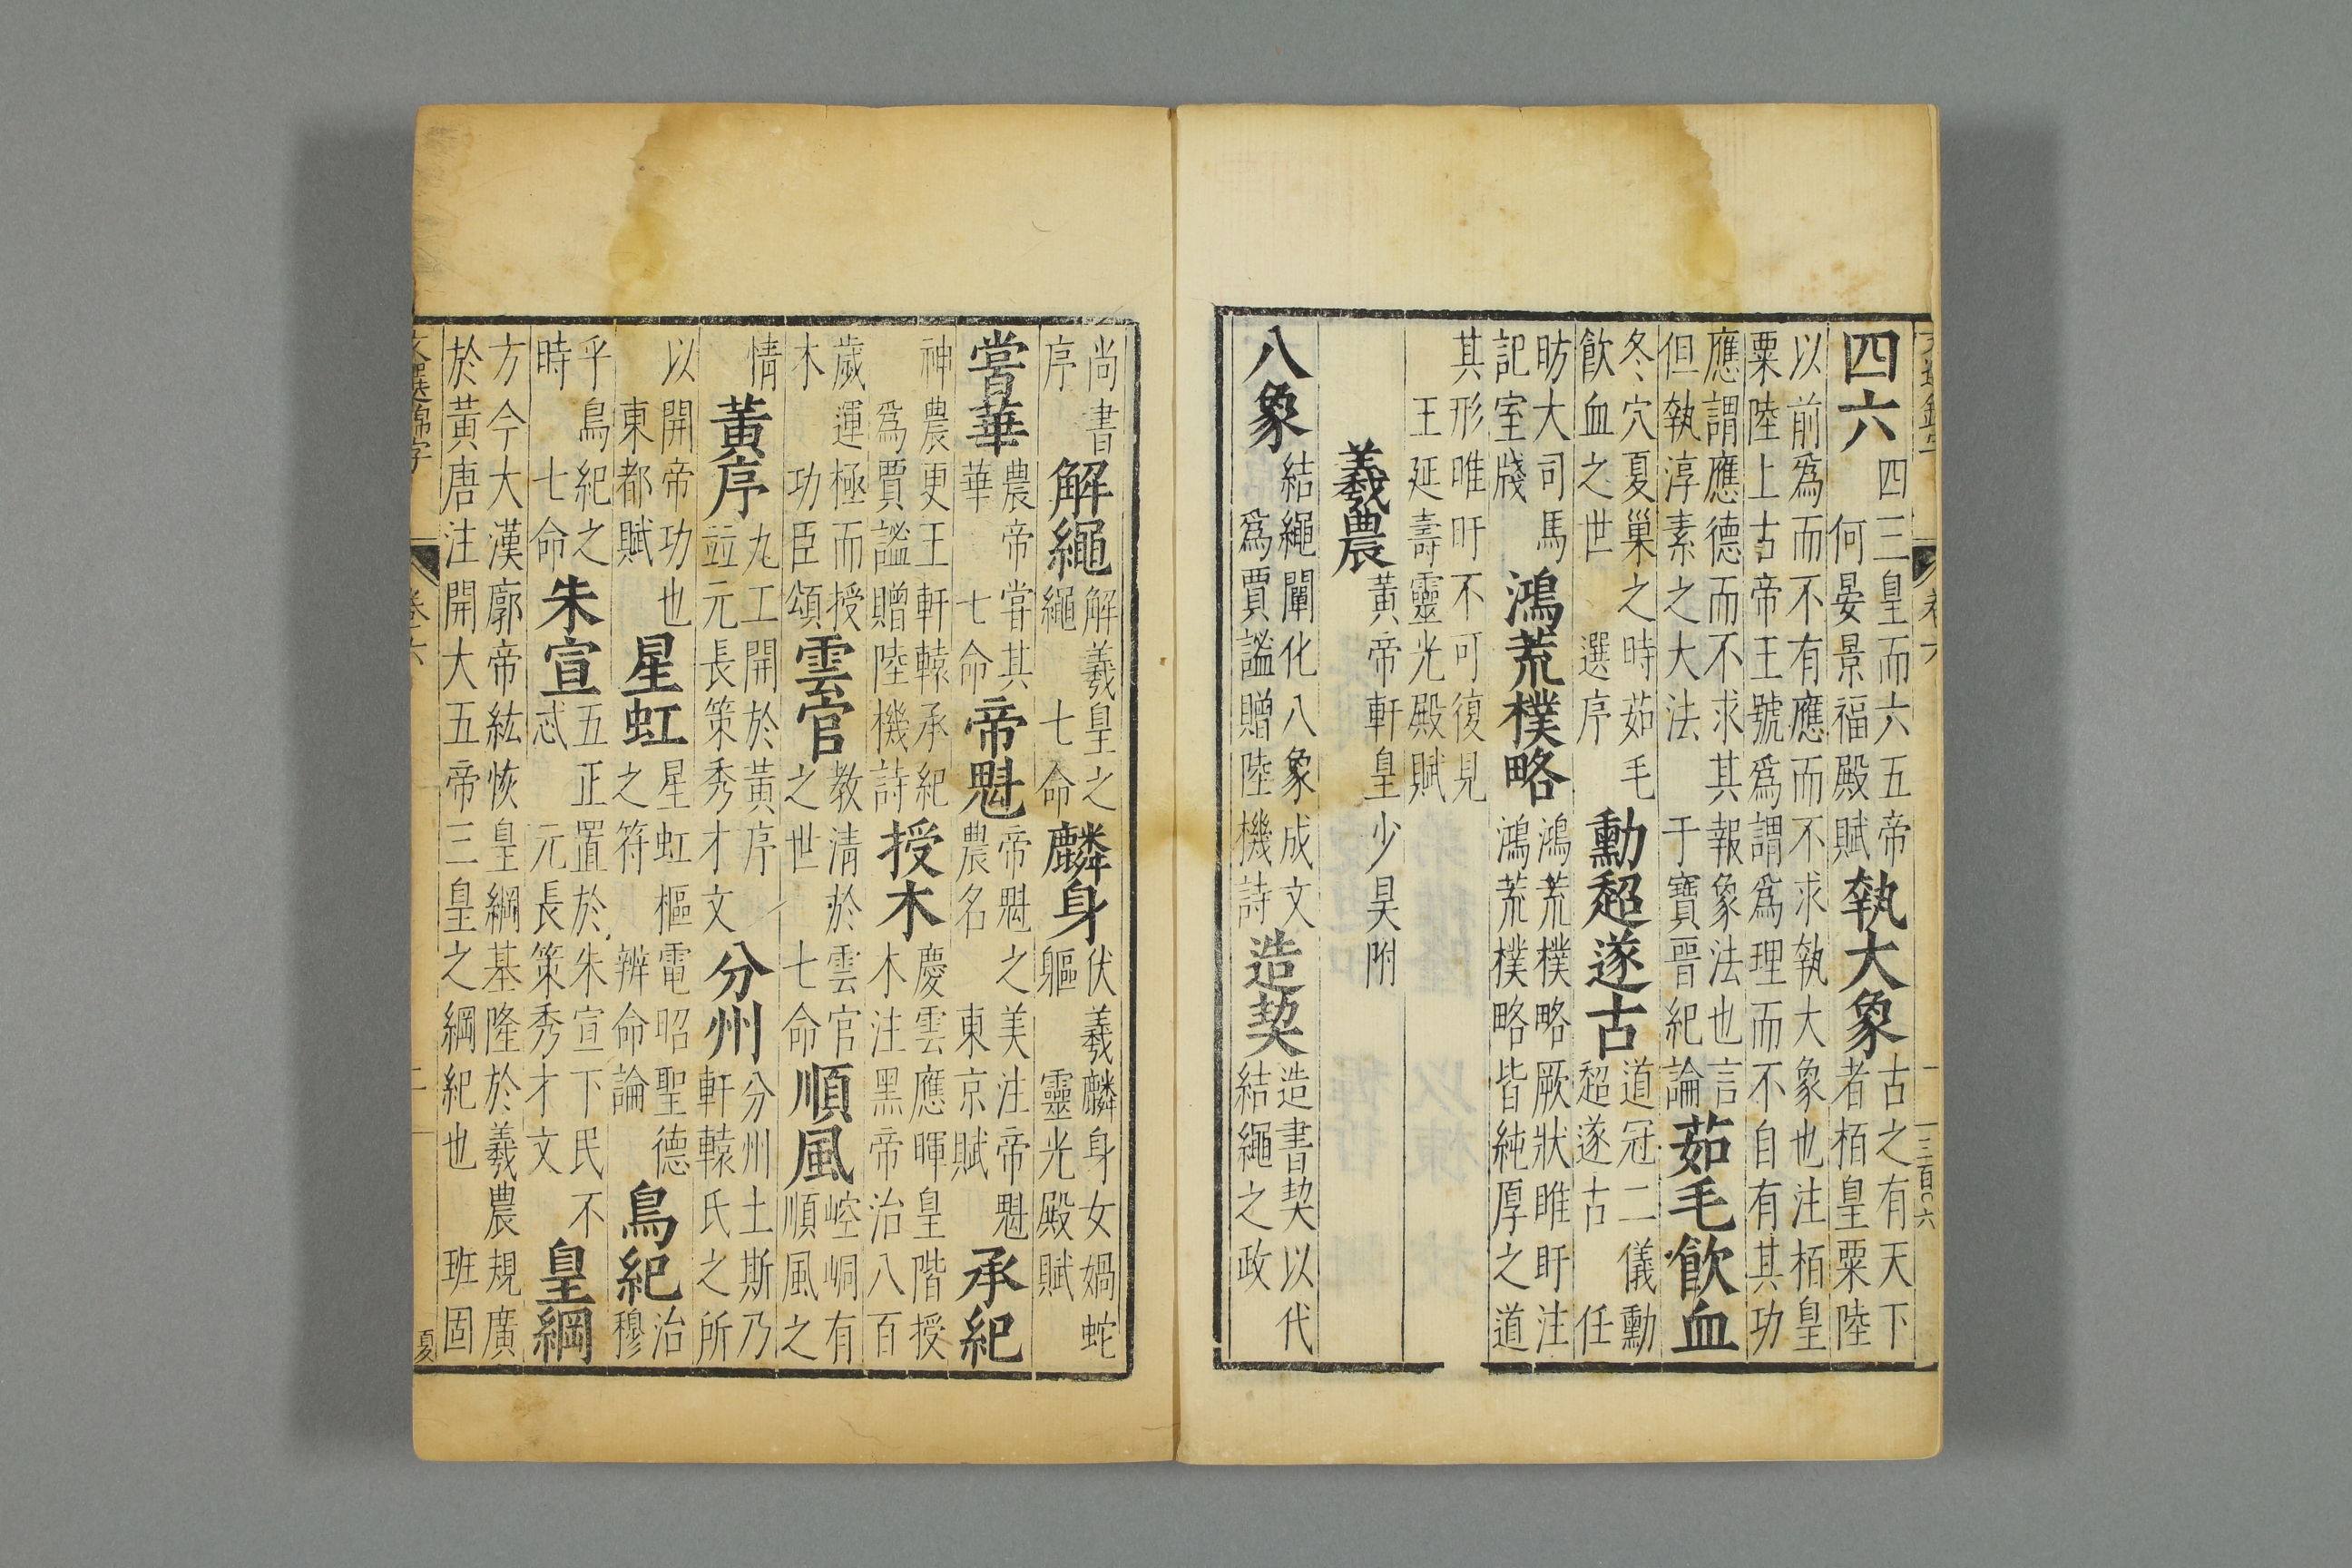 四六四三皇而六五帝何晏景福殿賦執大象古之有天下者栢皇粟陸
以前爲而不有應而不求執大象也注栢皇粟陸上古帝王號爲謂爲理而不自有其功
應謂應德而不求其報象法也言但執淳素之大法于寶晉紀論茹毛飲血
冬穴夏巢之時茹毛飲血之世選序勳超遂古道冠二儀勳超遂古任
昉大司馬記室牋鴻荒樸略鴻荒樸略厥狀睢盱注鴻荒樸略皆純厚之道
其形唯盱不可復見王延壽靈光殿賦
羲農黃帝軒皇少昊附
八象結繩闡化八象成文爲賈謐贈陸機詩造契造書契以代結繩之政
尚書序解繩解羲皇之繩七命麟身伏羲麟身女媧蛇軀靈光殿賦
嘗華農帝嘗其華七命帝魁帝魁之美注帝魁農名東京賦承紀
神農更王軒轅承紀爲賈謐贈陸機詩授木慶雲應暉皇階授木注黑帝治八百
歲運極而授木功臣頌雲官教清於雲官之世七命順風崆峒有順風之
情黃序九工開於黃序竝元長策秀才文分州分州土斯乃軒轅氏之所
以開帝功也東都賦星虹星虹樞電昭聖德之符辨命論鳥紀治穆
乎鳥紀之時七命朱宣五正置於朱宣下民不忒元長策秀才文皇綱
方今大漢廓帝紘恢皇綱基隆於羲農規廣於黃唐注開大五帝三皇之綱紀也班固
文選錦字
卷六
二
夏
卷六
一
三百〇六